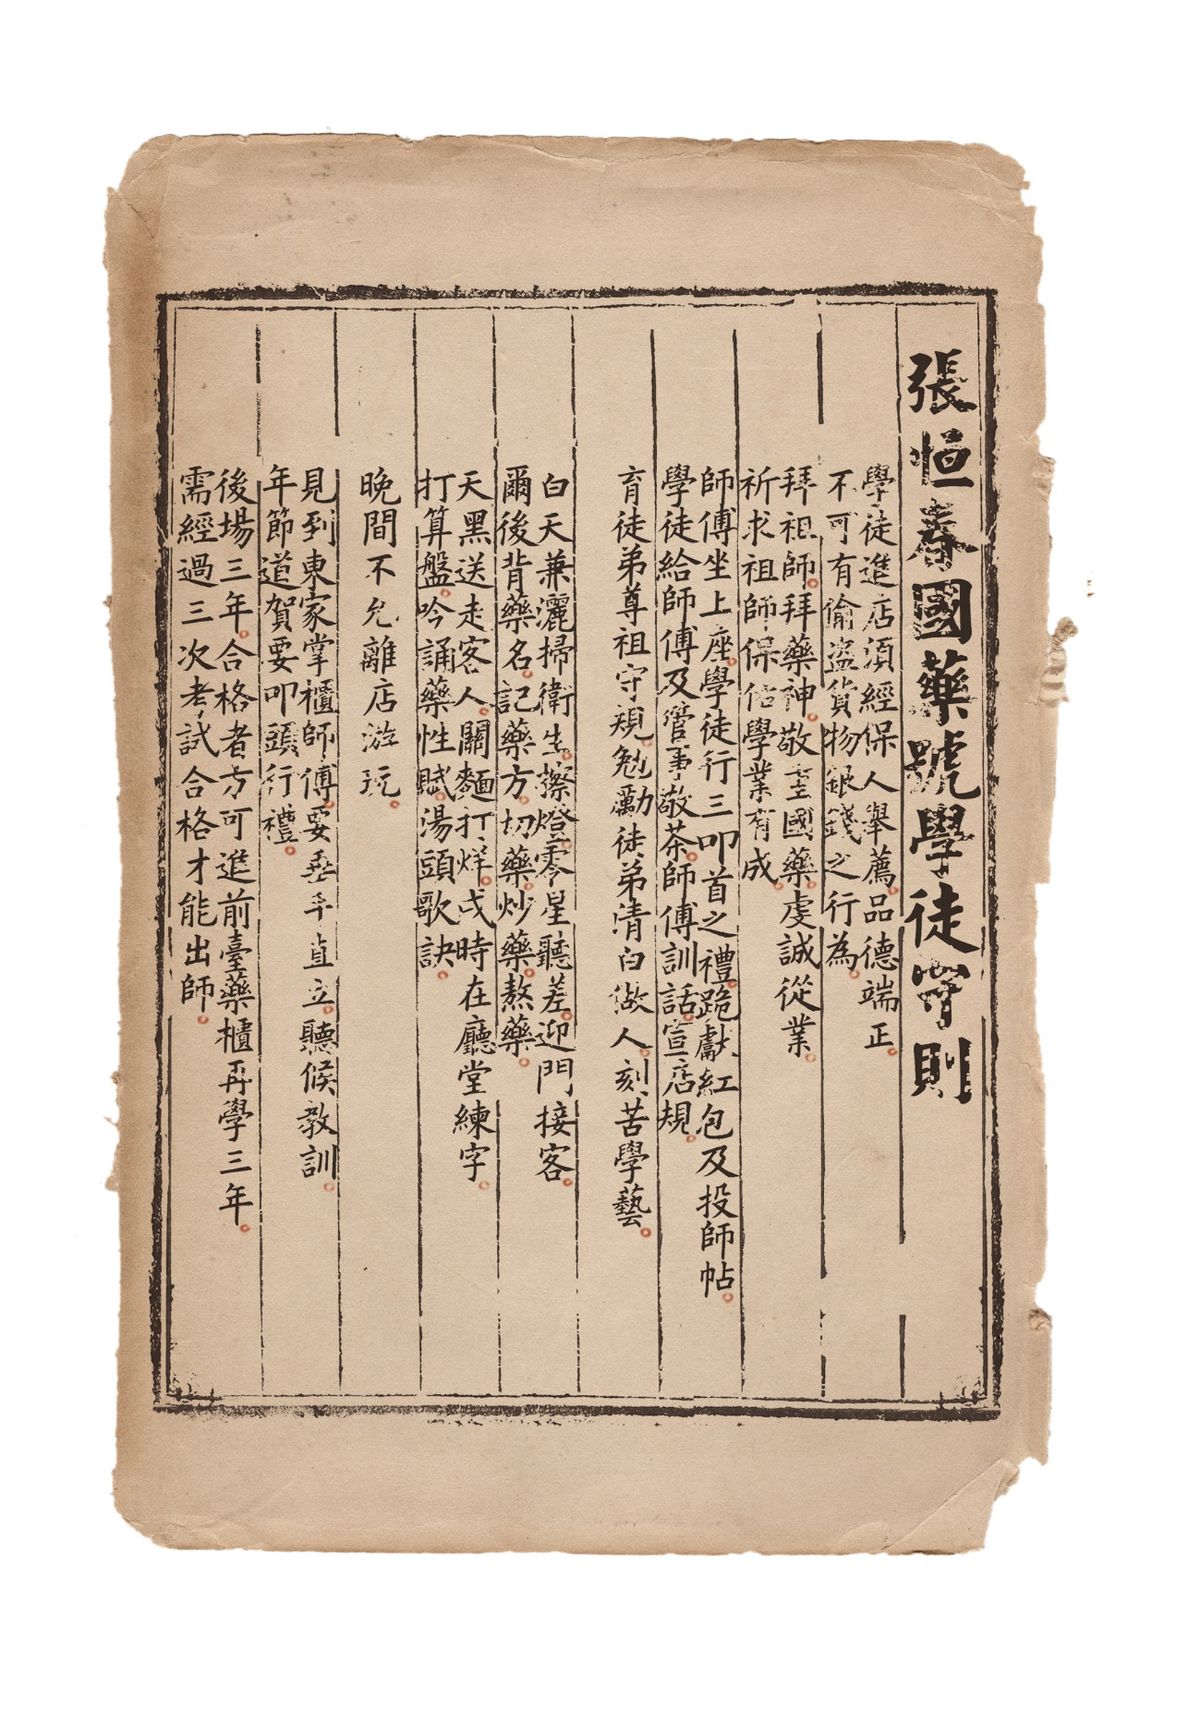 張恒春國藥號學徒守則
學徒進店須經保人舉薦。品德端正。
不可有偷盜貨物銀錢之行為。
拜祖師。拜藥神。敬重國藥。虔誠從業。
祈求祖師保佑學業有成。
師傅坐上座。學徒行三叩首之禮。跪獻紅包及投師帖。
學徒給師傅及管事敬茶。師傅訓話。宣店規。
育徒弟尊祖守規。勉勵徒弟清白做人。刻苦學藝。
白天兼灑掃衛生。擦燈。零星聽差。迎門接客。
爾後背藥名。記藥方。切藥。炒藥。熬藥。
天黑送走客人。關麵打烊。戌時在廳堂練字。
打算盤。吟誦藥性賦。湯頭歌訣。
晚間不允離店游玩。
見到東家掌櫃師傅。要垂手直立。聽候教訓。
年節道賀要叩頭行禮。
後場三年。合格者方可進前臺藥櫃再學三年。
需經過三次考試合格才能出師。